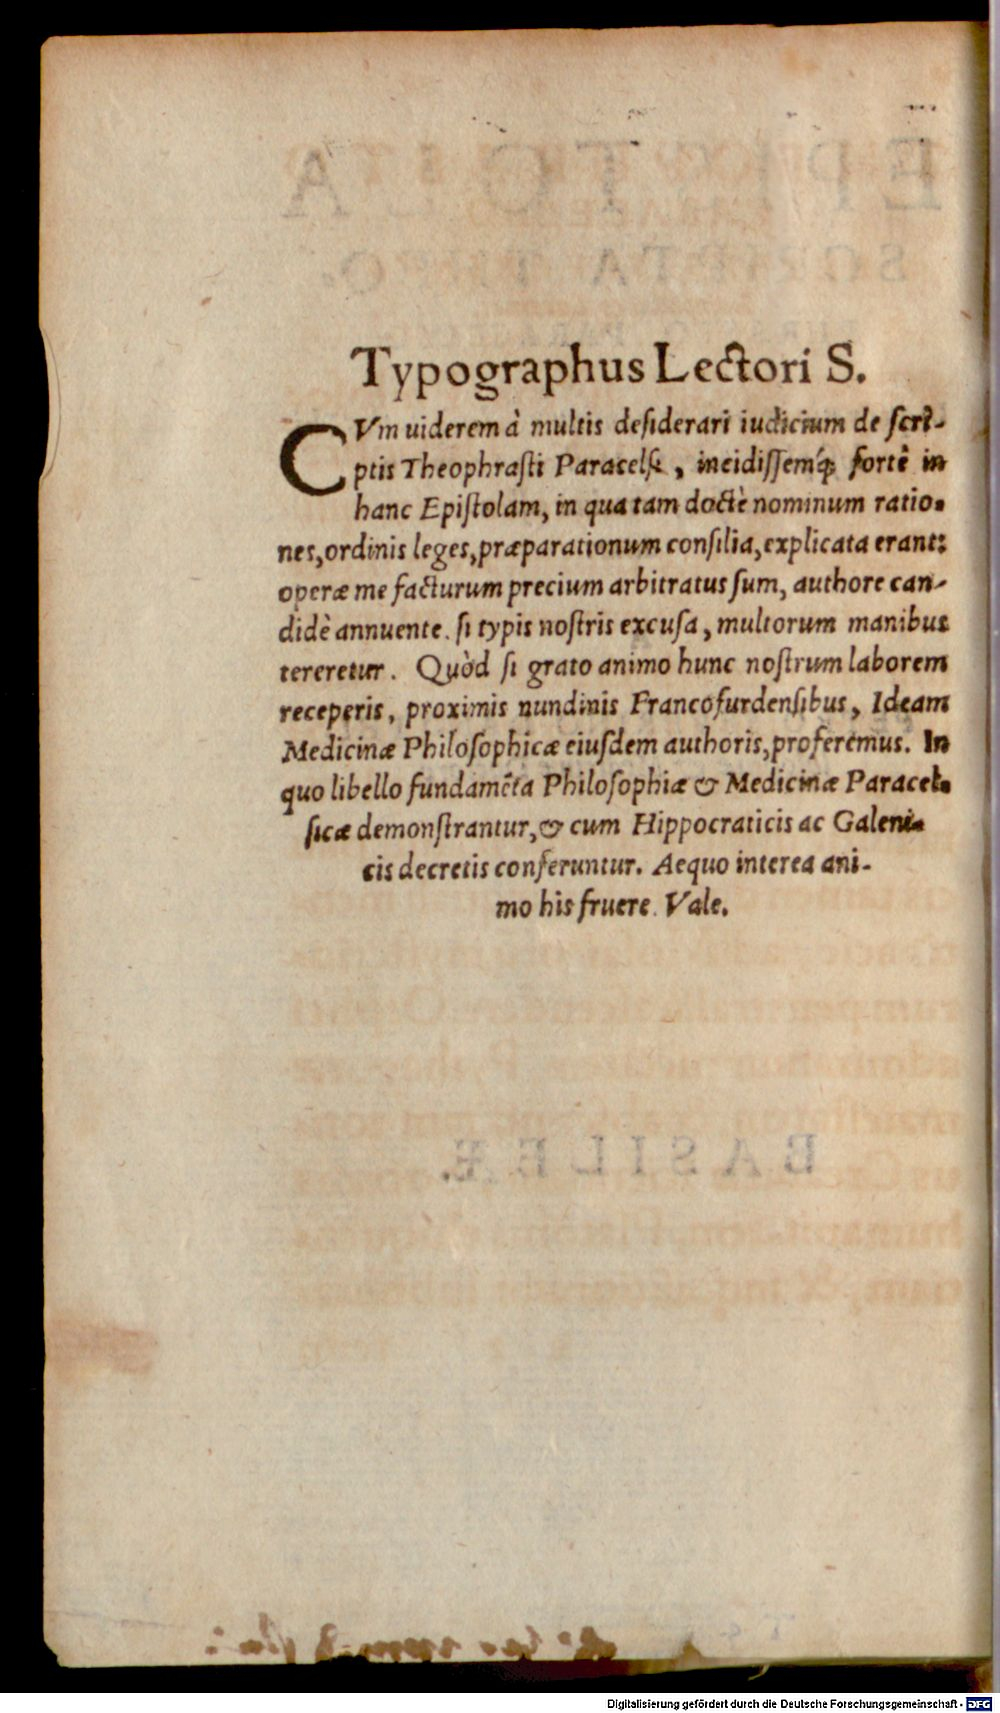 Typographus Lectori S.
CVm uiderem à multis desiderari iudicium de scri-
ptis Theophrasti Paracelsi, incidissemq́; fortè in
hanc Epistolam, in qua tam doctè nominum ratio-
nes, ordinis leges, præparationum consilia, explicata erant:
operæ me facturum precium arbitratus sum, authore can-
didè annuente. si typis nostris excusa, multorum manibus
tereretur. Quòd si grato animo hunc nostrum laborem
receperis, proximis nundinis Francofurdensibus, Ideam
Medicinæ Philosophicæ eiusdem authoris, proferemus. In
quo libello fundamẽta Philosophiæ & Medicinæ Paracel-
sicæ demonstrantur, & cum Hippocraticis ac Galeni-
cis decretis conferuntur. Aequo interea ani-
mo his fruere. Vale.
Digitalisierung gefördert durch die Deutsche Forschungsgemeinschaft - DFG